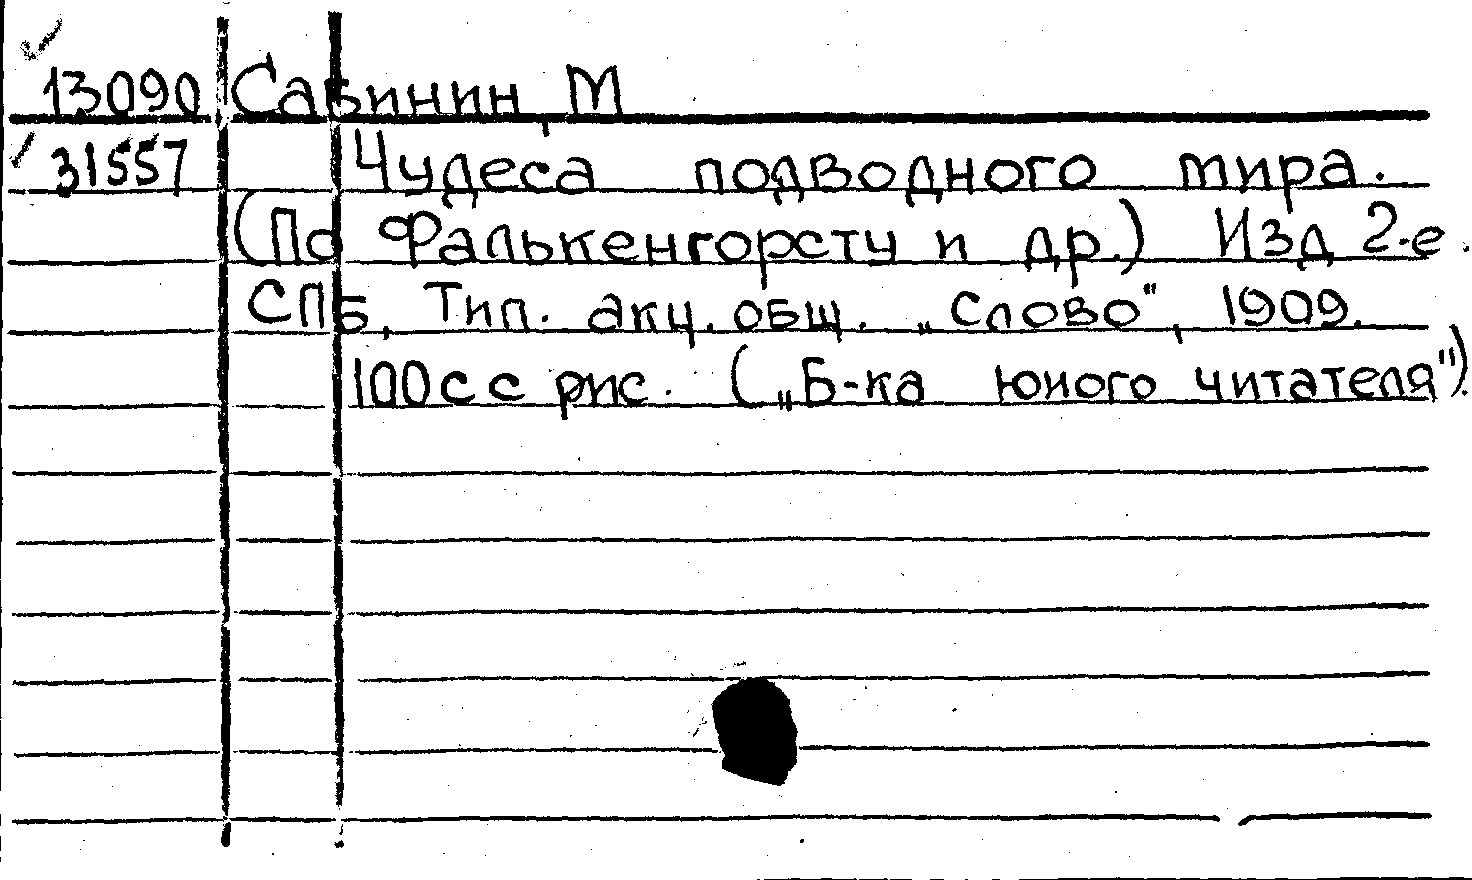 13090 Сабинин, М
31557 Чудеса подводного мира.
(По Фалькенгорсту и др.) Изд 2-е.
СПБ, Тип. акц. общ. „Слово", 1909.
100 с с рис. („Б-ка юного читателя").